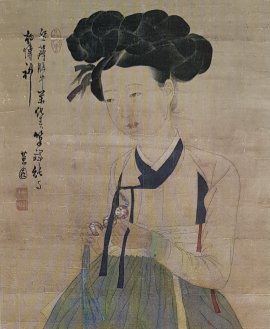 盤薄胸中萬化春筆端能與
物傳神
蕙園